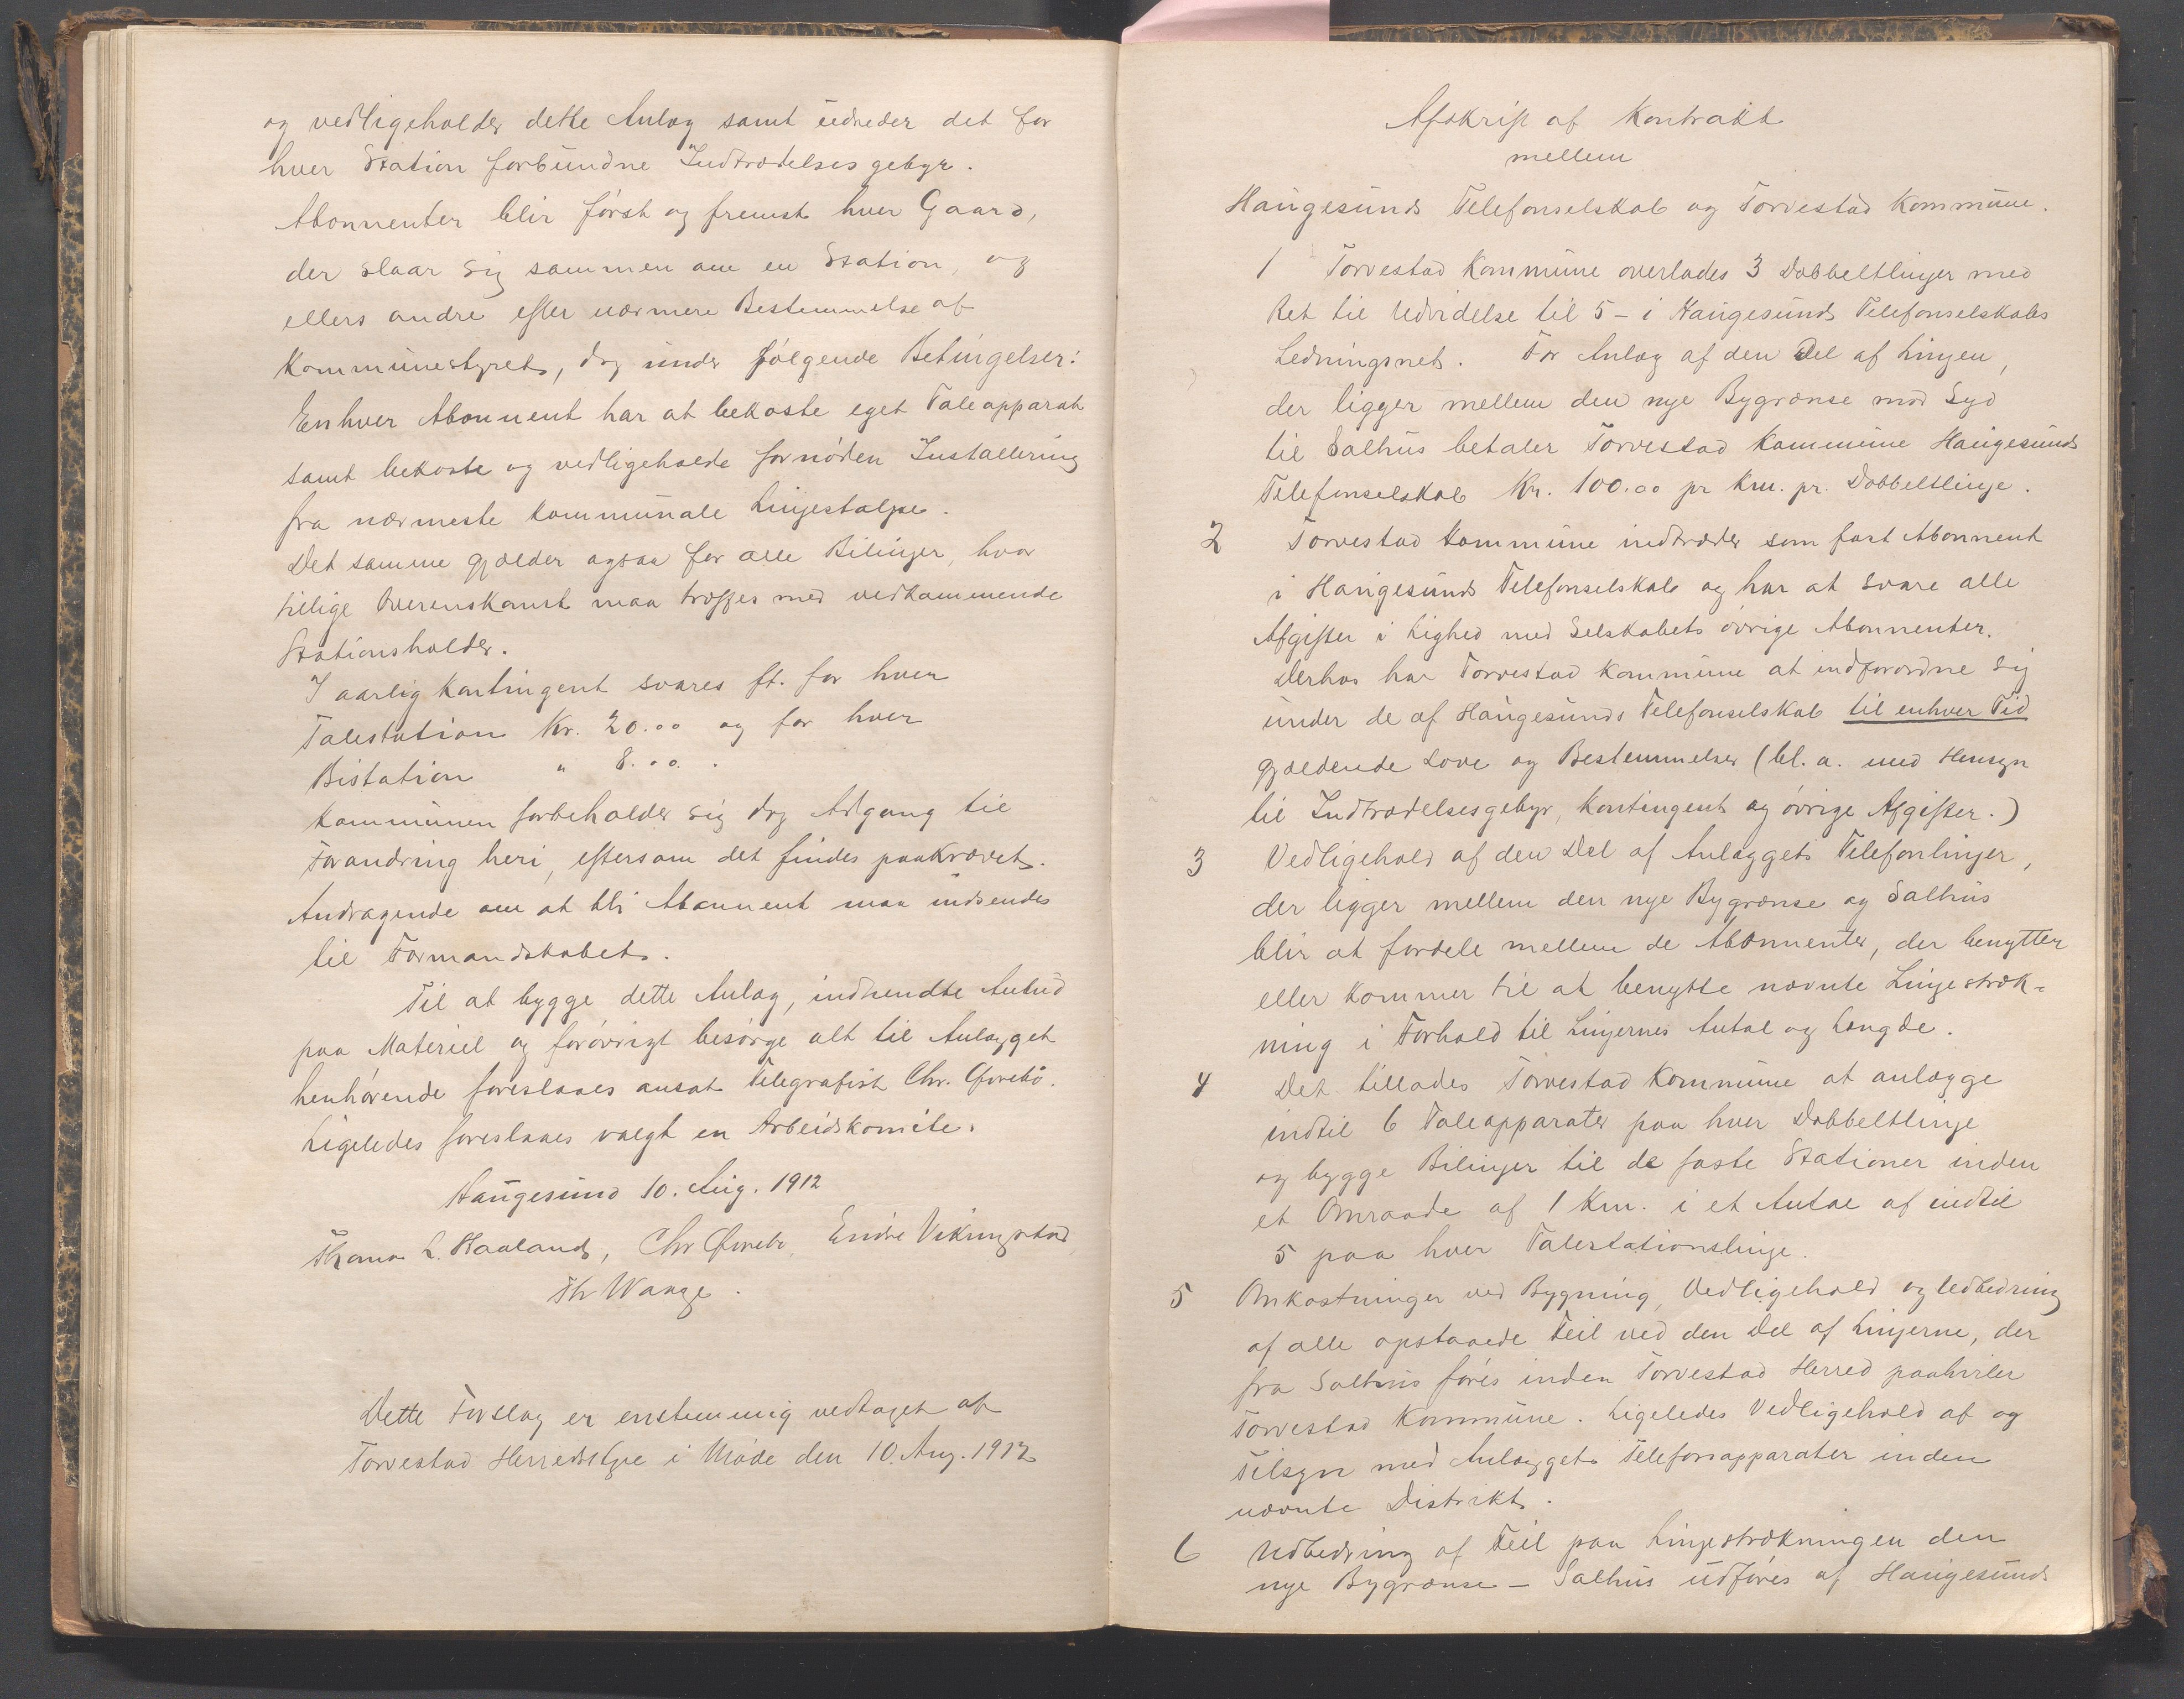 og vedligeholder dette Anlæg samt udreder det for
hver Station forbundne Indtrædelsesgebyr.
Abonnenter blir først og fremst hver Gaard,
der slaar sig sammen om en Station, og
ellers andre efter nærmere Bestemmelse af
Kommunestyret, dog under følgende Betingelser:
Enhver Abonnent har at bekoste eget Taleapparat
samt bekoste og vedligeholde fornøden Installering
fra nærmeste kommunale Linjestolpe.
Det samme gjælder ogsaa for alle Bilinjer, hvor
tillige Overenskomst maa træffes med vedkommende
Stationsholder.
I aarlig Kontingent svares ft. for hver
Talestation Kr. 20.00 og for hver
Bistation " 8.00.
Kommunen forbeholder sig dog Adgang til
Forandring heri, eftersom det findes paakrævet.
Andragende om at bli Abonnent maa indsendes
til Formandskabet.
Til at bygge dette Anlæg, indhendte Anbud
paa Materiel og forøvrigt besørge alt til Anlægget
henhørende foreslaaes ansat Telegrafist Chr. Øvrebø.
Ligeledes foreslaaes valgt en Arbeidskomite.
Haugesund 10. Aug. 1912
L. Haaland, Chr Øvrebø, Endre Vikingstad
Th Wange.
Dette Forslag er enstemmig vedtaget af
Torvestad Herredstyre i Møde den 10. Aug. 1912
Afskrift af Kontrakt
mellem
Haugesunds Telefonselskab og Torvestad Kommune.
1 Torvestad Kommune overlades 3 Dobbeltlinjer med
Ret til Udvidelse til 5 - i Haugesunds Telefonselskabs
Ledningsnet. For Anlæg af den Del af Linjen,
der ligger mellem den nye Bygrænse mod Syd
til Salhus betaler Torvestad Kommune Haugesunds
Telefonselskab Kr. 100.00 pr Km. pr. Dobbeltlinje.
2 Torvestad Kommune indtræder som fast Abonnent
i Haugesunds Telefonselskab og har at svare alle
Afgifter i Lighed med Selskabets øvrige Abonnenter.
Derhos har Torvestad Kommune at indforordne sig
under de af Haugesunds Telefonselskab til enhver Tid
gjældende Love og Bestemmelser (bl. a. med Hensyn
til Indtrædelsesgebyr, Kontingent og øvrige Afgifter.)
3 Vedligehold af den Del af Anlæggets Telefonlinjer,
der ligger mellem den nye Bygrænse og Salhus
blir at fordele mellem de Abonnenter, der benytter
eller kommer til at benytte nævnte Linjestræk-
ning i Forhold til Linjernes Antal og Længde.
4 Det tillades Torvestad Kommune at anlægge
indtil 6 Taleapparater paa hver Dobbeltlinje
og bygge Bilinjer til de faste Stationer inden
et Omraade af 1 Km. i et Antal af indtil
5 paa hver Talestationslinje.
5 Omkostninger ved Bygning, Vedligehold og Udbedring
af alle opstaaede Feil ved den Del af Linjerne, der
fra Salhus føres inden Torvestad Herred paahviler
Torvestad Kommune. Ligeledes Vedligehold af og
Tilsyn med Anlægget Telefonapparater inden
nævnte Distrikt.
6 Udbedring af Feil paa Linjestrækningen den
nye Bygrænse - Salhus udføres af Haugesunds